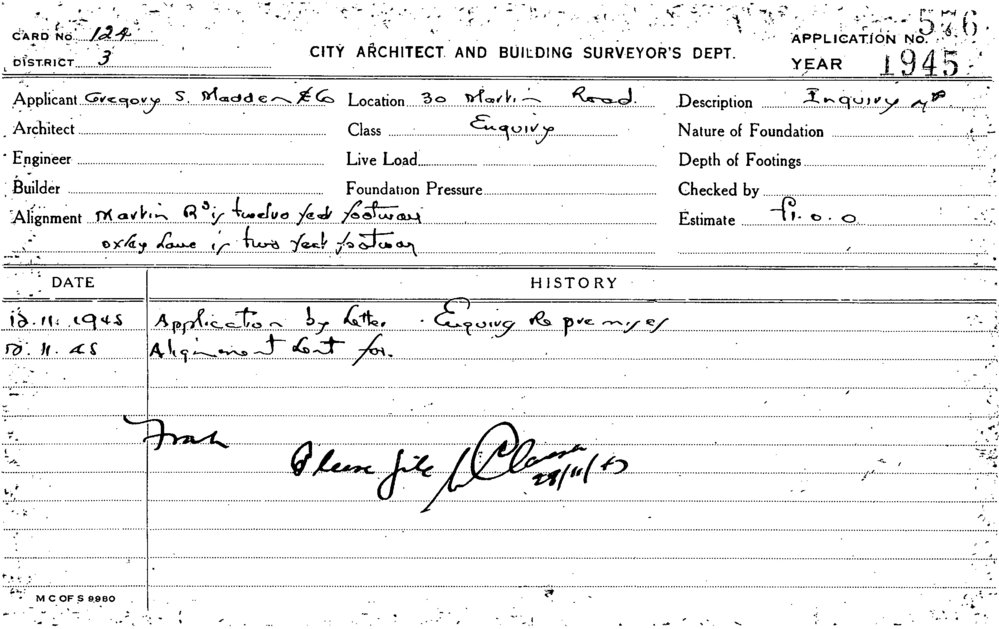 CARD No. 124
APPLICATION No. 576
DISTRICT 3
CITY ARCHITECT AND BUILDING SURVEYOR'S DEPT.
YEAR 1945
Applicant Gregory S. Madden & Co Location 30 Martin Road. Description Inquiry
Architect Class Enquiry Nature of Foundation
Engineer Live Load Depth of Footings
Builder Foundation Pressure Checked by
Alignment Martin Rd is twelve feet footway Estimate £1.0.0
Oxley Lane is two feet footway
DATE HISTORY
12.11.1945 Application by Letter. Enquiry Re premises
12.11.45 Alignment sent for.
Please file
M C OF S 9980